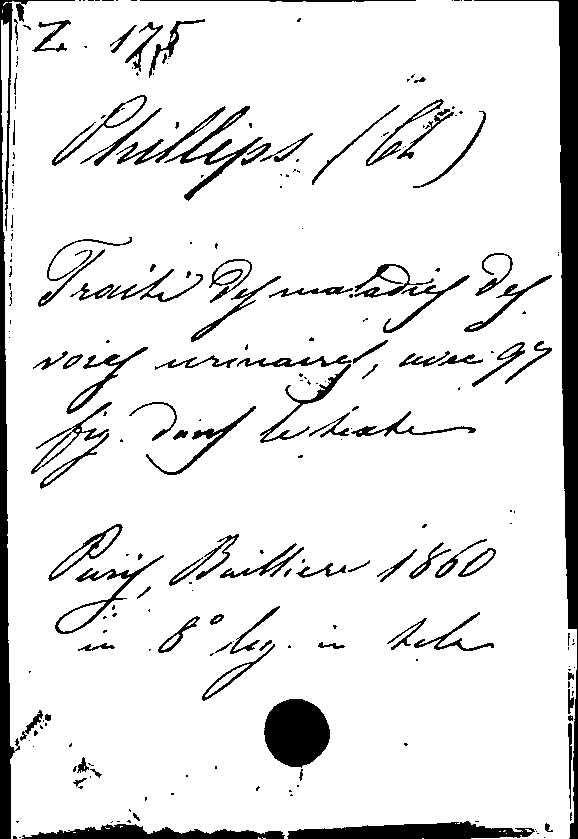 Z. 175
Phillips. (Ch)
Traité des maladies des
voies urinaires, avec 97
fig. dans le texte
Paris, Baillière 1860
in 8° leg. in tela